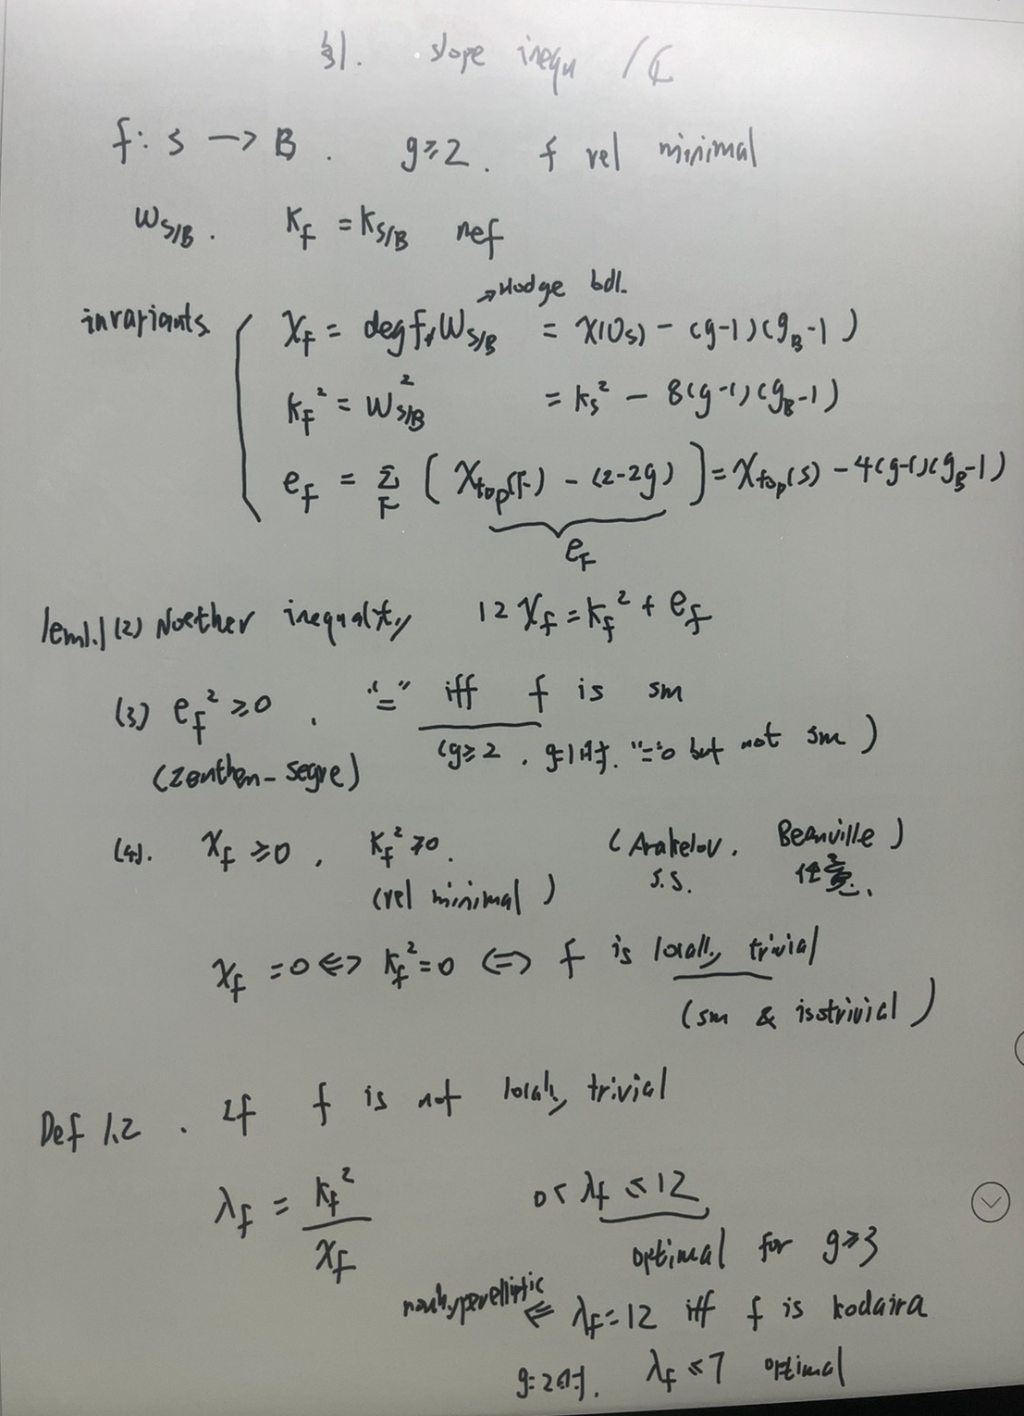 §1. slope inequ /ℂ
f: S → B. g≥2. f rel minimal
ω_{S/B}. K_f = K_{S/B} nef
→Hodge bdl.
invariants { χ_f = deg f_*ω_{S/B} = χ(O_S) - (g-1)(g_B-1)
K_f² = ω²_{S/B} = K_S² - 8(g-1)(g_B-1)
e_f = Σ_F (χ_top(F) - (2-2g)) = χ_top(S) - 4(g-1)(g_B-1)
e_F
lem1.1 (2) Noether inequality, 12χ_f = K_f² + e_f
(3) e_f² ≥0, "=" iff f is sm
(Zenthen-Segre) (g≥2, g=1时. "="0 but not sm)
(4). χ_f ≥0, K_f² ≥0. (Arakelov, Beauville)
(rel minimal) s.s. 任意.
χ_f =0 ⇔ K_f²=0 ⇔ f is locally trivial
(sm & isotrivial)
Def 1.2. If f is not locally trivial
λ_f = K_f² / χ_f 0< λ_f ≤12
optimal for g≥3
nonhyperelliptic ⇐ λ_f=12 iff f is kodaira
g=2时. λ_f ≤7 optimal